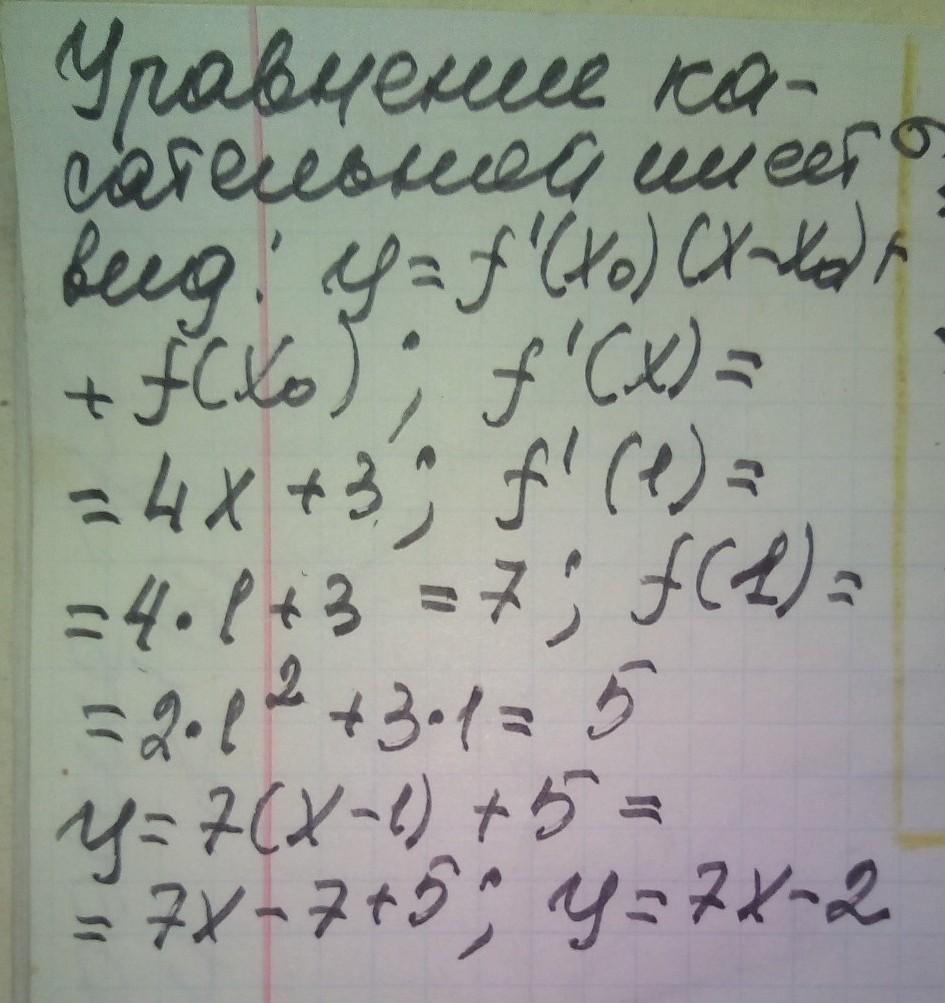 Уравнение ка-
сательной имеет
вид: y = f'(x₀)(x-x₀)+
+ f(x₀); f'(x) =
= 4x + 3; f'(1) =
= 4·1+3 = 7; f(1) =
= 2·1² + 3·1 = 5
y = 7(x-1) + 5 =
= 7x - 7 + 5; y = 7x - 2